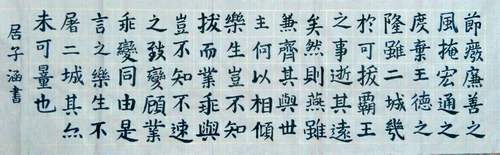 節廢廉善之
風掩宏通之
度棄王德之
隆雖二城幾
於可拔霸王
之事逝其遠
矣然則燕雖
兼齊其與世
主何以相傾
樂生豈不知
拔而業乖與
豈不知不速
之致變顧業
乖變同由是
言之樂生不
屠二城其亦
未可量也
居子涵書